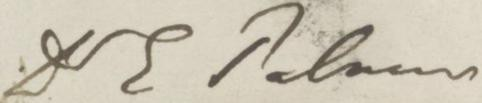 D E Palmer